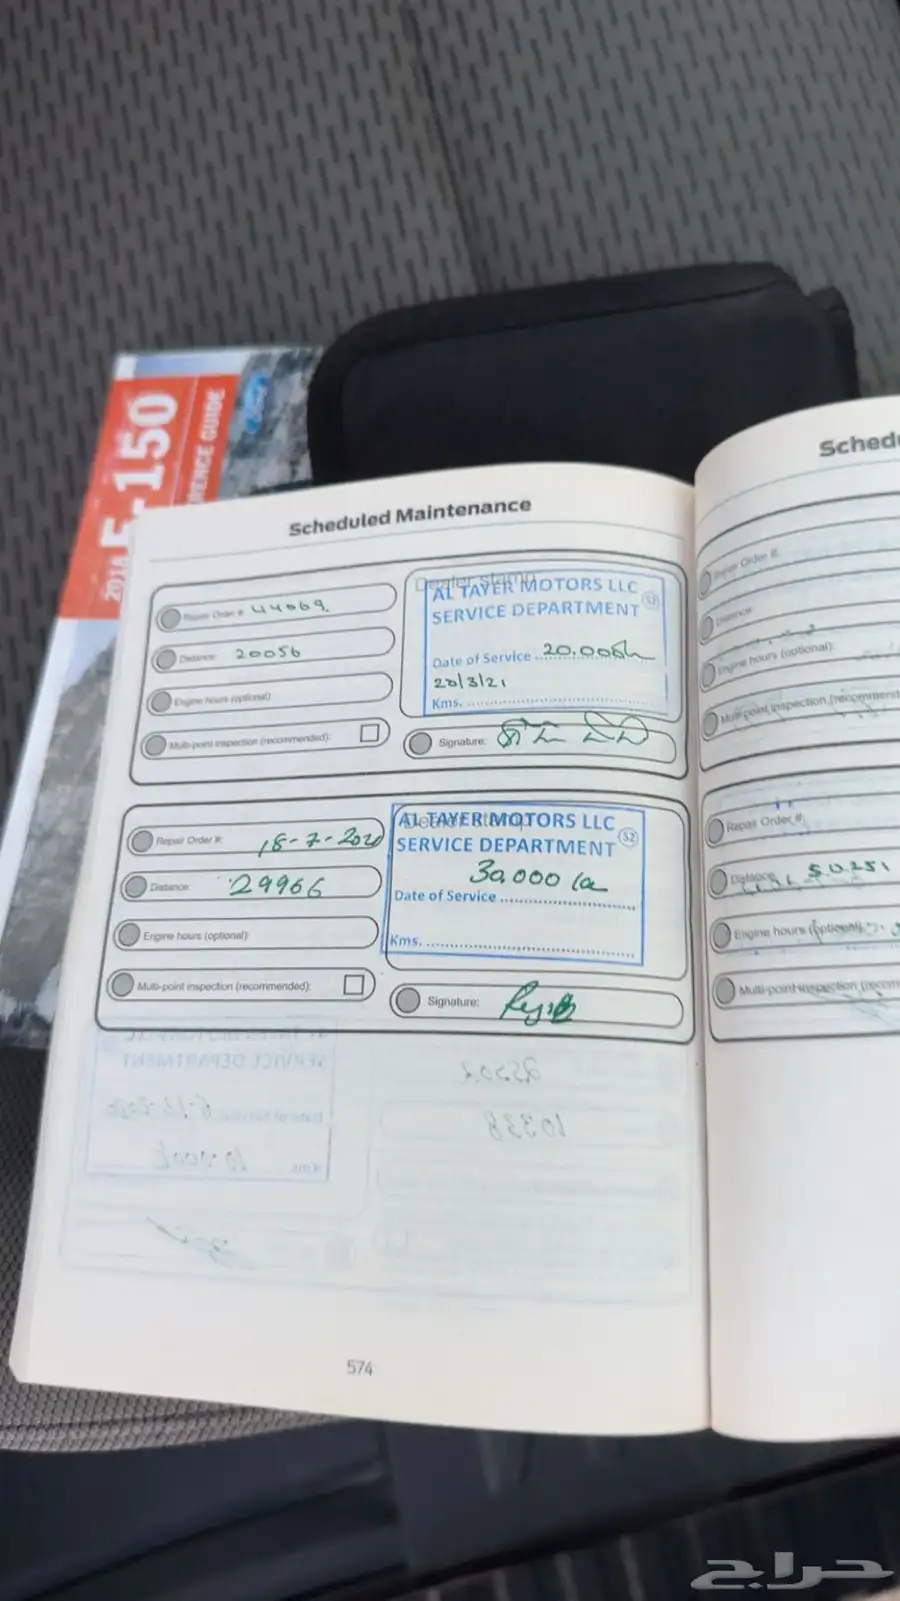 2018 F-150
RENCE GUIDE
Ford
Scheduled Maintenance
Repair Order #: 44069
Distance: 20056
Engine hours (optional):
Multi-point inspection (recommended):
Dealer stamp
AL TAYER MOTORS LLC
SERVICE DEPARTMENT
52
Date of Service
20/3/21
Kms.
Signature:
Repair Order #: 18-7-202
Distance: 29966
Engine hours (optional):
Multi-point inspection (recommended):
Dealer stamp
AL TAYER MOTORS LLC
SERVICE DEPARTMENT
52
30,000
Date of Service
Kms.
Signature:
574
Schedu
Repair Order #:
Distance:
Engine hours (optional):
Multi-point inspection (recommend
Repair Order #:
Distance: 50251
Engine hours (optional):
Multi-point inspection (recom
حراج